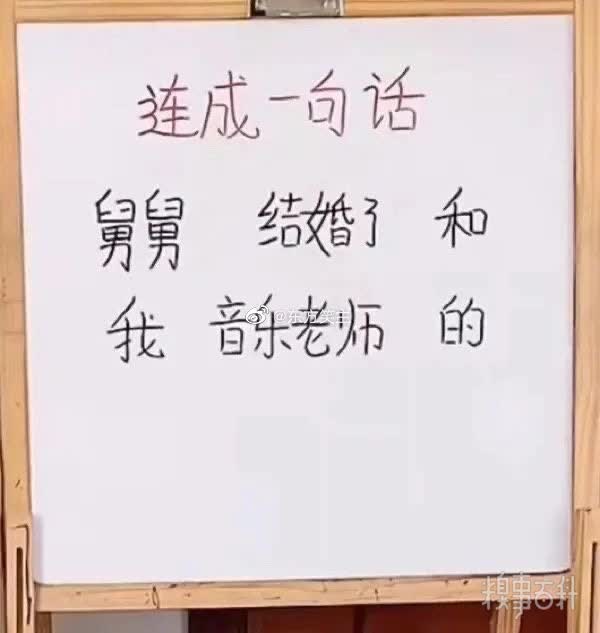 连成一句话
舅舅 结婚了 和
我 音乐老师 的
@东方笑王
糗事百科